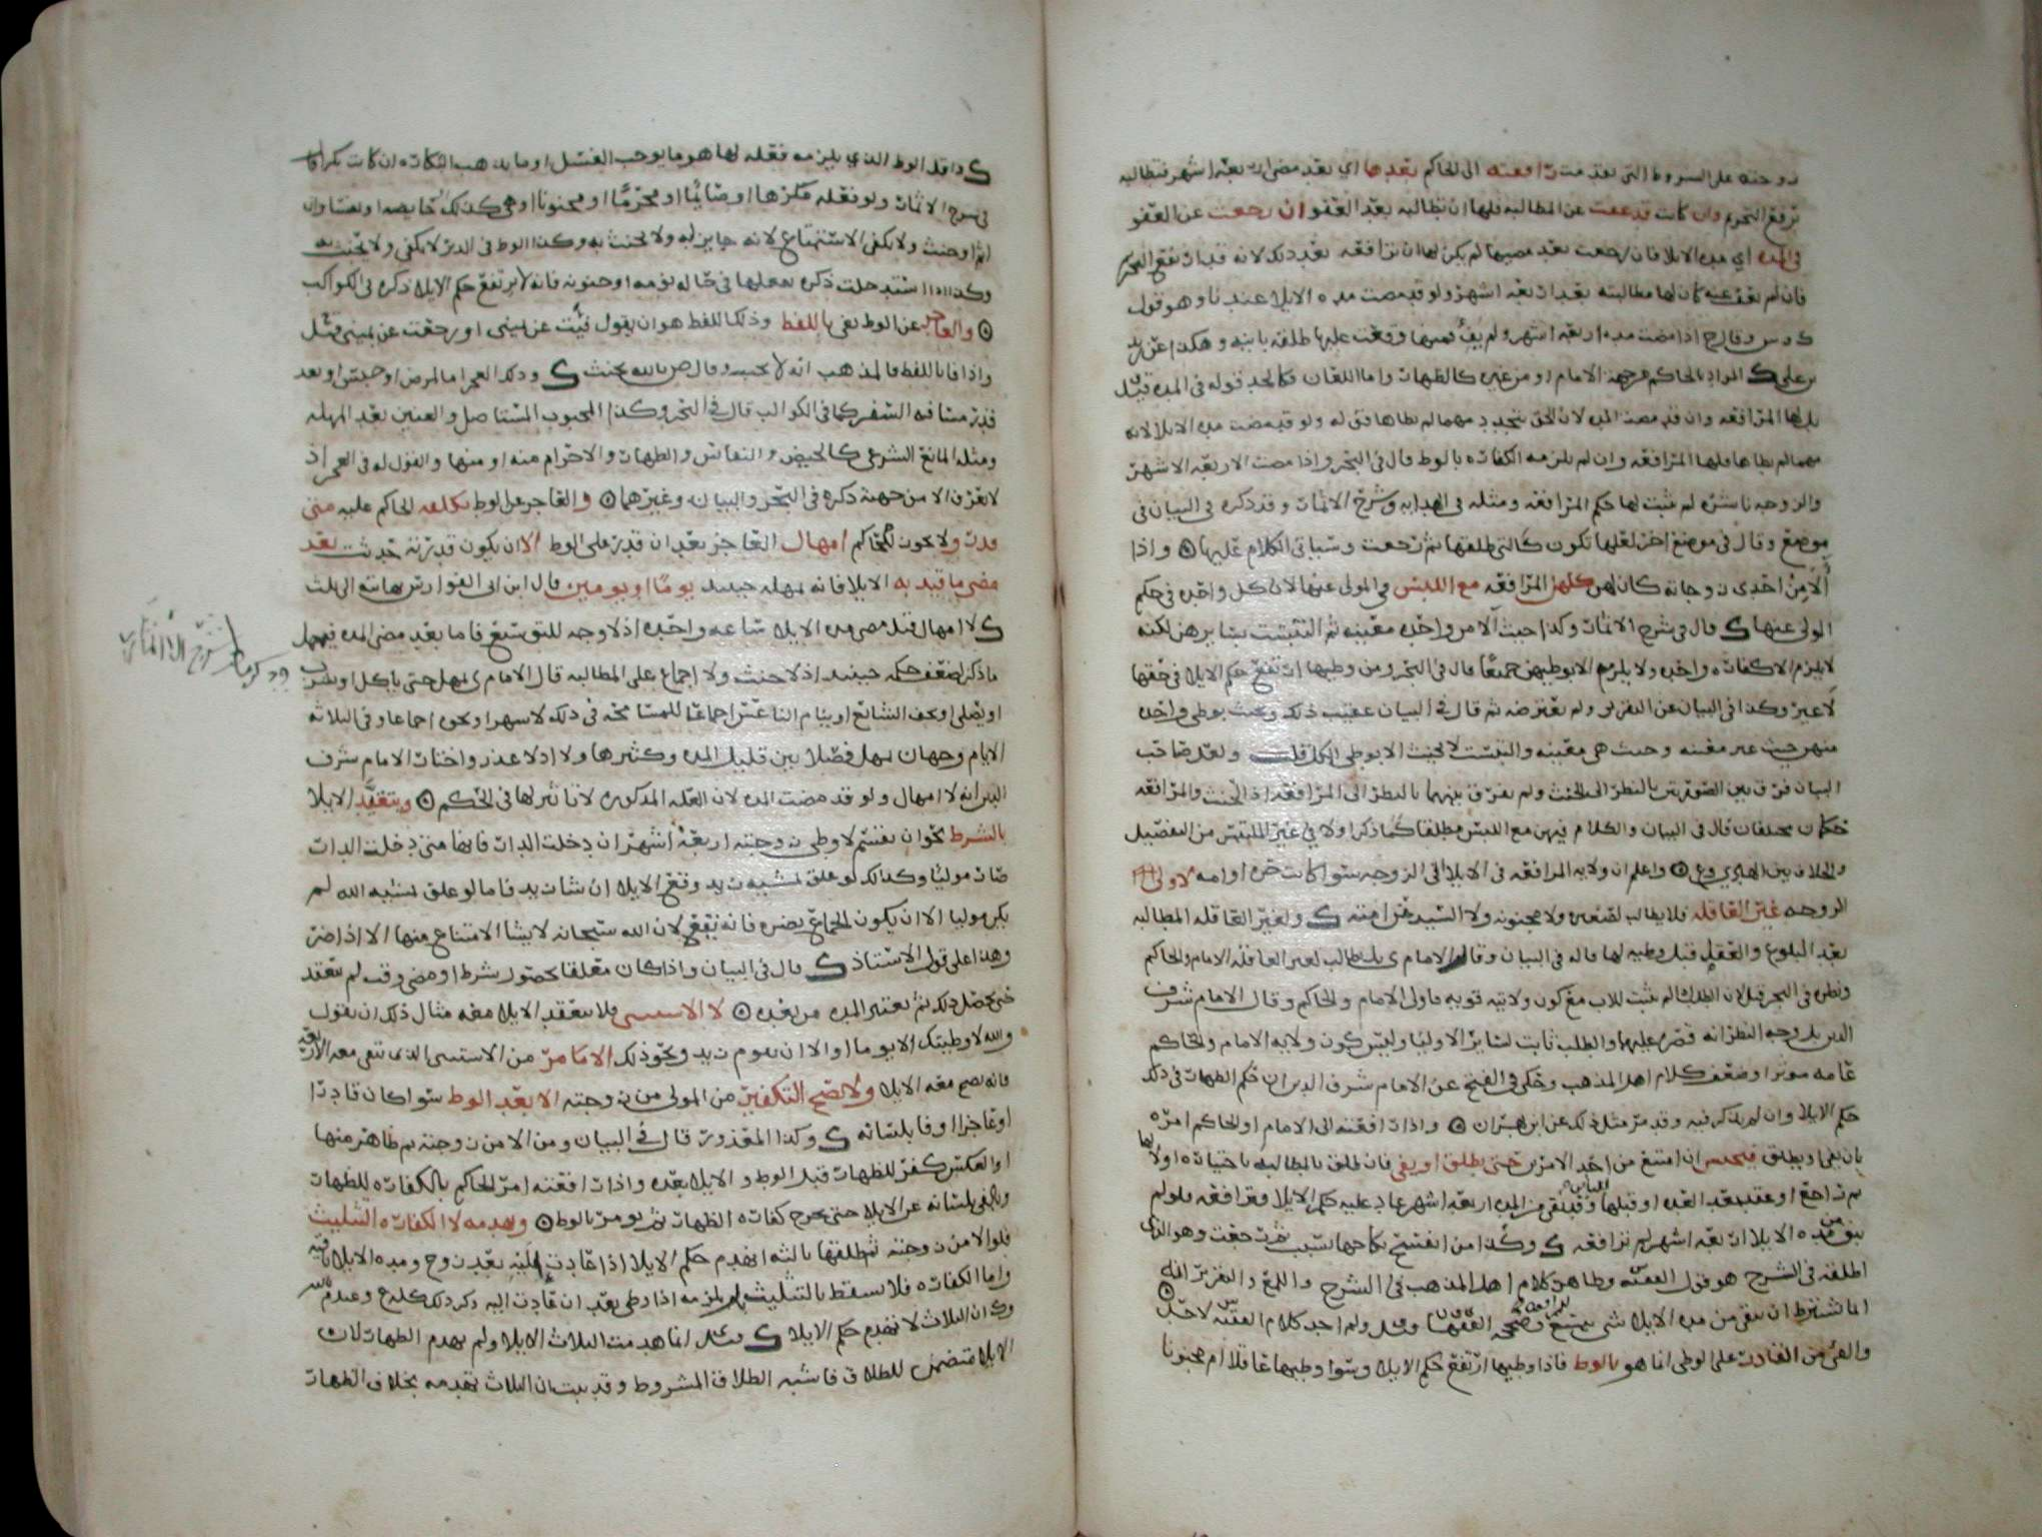 زوجته على الشروط التي تقدمت رافعته الى الحاكم بعدها اي بعد مضي اربعه اشهر فتطالبه
برفع التحريم وان كانت قد عفت عن المطالبه فلها ان تطالبه بعد العفو ان رجعت عن العفو
في المده اي مده الايلا فان رجعت بعد مضيها لم يكن لها ان ترافعه بعد ذلك لانه قد ارتفع التحريم
فان لم تعف عنه كان لها مطالبته بعد اربعه اشهر ولو قد مضت مده الايلا عندنا وهو قول
ك و س وقال ح اذا مضت مده اربعه اشهر ولم يف فيها وقعت عليها طلقه باينه وهكذا عن زيد
بن علي ك المراد بالحاكم من جهة الامام او من غيره كالظهار واما اللعان فكالحد قوله في المده قيل
بل لها المرافعه وان قد مضت المده لان الحق يتجدد مهما لم يطاها فق له ولو قد مضت مده الايلا لانه
مهما لم يطاها فلها المرافعه وان لم يلزمه الكفاره بالوطي قال في البحر واذا مضت الاربعه الاشهر
والزوجه ناشزه لم يثبت لها حكم المرافعه ومثله في الهدايه وشرح الاثمار وقد ذكره في البيان في
موضع وقال في موضع اخر لعلها تكون كالتي طلقها ثم رجعت وسياتي الكلام عليها واذا
آلا من احدى زوجاته كان لهن كلهن المرافعه مع اللبس في المولى عنها لان كل واحده في حكم
المولى عنها ك قال في شرح الاثمار وكذا حيث آلا من واحده معينه ثم التبست بسايرهن لكنه
لا يلزم الا كفاره واحده ولا يلزم الا بوطيهن جميعا قال في البحر ومن وطيها ارتفع حكم الايلا في حقها
لا غير وكذا في البيان عن التقرير ولم يعترضه ثم قال في البيان عقيب ذلك ويحنث بوطي واحده
منهن حيث غير معينه وحيث هي معينه والتبست لا يحنث الا بوطي الكل قلت ولعل صاحب
البيان فرق بين الصورتين بالنظر الى الحنث ولم يفرق بينهما بالنظر الى المرافعه اذ الحنث والمرافعه
حكمان مختلفان قال في البيان والكلام فيهن مع اللبس مطلقا كما ذكر اولا في غير الملتبس من التفصيل
والخلاف بين الهادي وع واعلم ان ولايه المرافعه في الايلا الى الزوجه سوا كانت حره او امه لا ولي
الزوجه غير العاقله فلا يطالب لصغيره ولا مجنونه ولا السيد عن امته ك ولغير العاقله المطالبه
بعد البلوغ والعقل قبل وطيه لها قاله في البيان وقال الامام ى بل يطالب لغير العاقله الامام والحاكم
ونظره في البحر قيل لان الطلب لم يثبت للاب مع كون ولايته قويه فاولى الامام والحاكم وقال الامام شرف
الدين بل وجه النظر انه قصره عليهما والطلب ثابت لساير الاوليا وليس كون ولايه الامام والحاكم
عامه موثرا وضعف كلام اهل المذهب وحكى في الفتح عن الامام شرف الدين ان حكم الظهار في ذلك
حكم الايلا وان لم يذكر فيه وقد مر مثل ذلك عن ابن بهران واذا رافعته الى الامام او الحاكم امره
بان يفي او يطلق فيحبس ان امتنع من احد الامرين حتى يطلق او يفي فان طلق بالمطالبه باختياره او لا بها
ثم راجع او عقد بعد العده او قبلها وقد بقي من المده اربعه اشهر عاد عليه حكم الايلا ومرافعه فلو لم
يبق من مده الايلا اربعه اشهر لم ترافعه ك وكذا من انفسخ نكاحها بسبب ثم رجعت وهو الذي
اطلقه في الشرح هو قول الفقيه وظاهر كلام اهل المذهب في الشرح واللمع والتقرير انه
انما شترط ان يبقى من مده الايلا شي وصححه الفقها وقيل ولم اجد كلام الفقيه لاحد
والفي من القادر على الوطي انما هو بالوطي فاذا وطيها ارتفع حكم الايلا وسوا وطيها عاقلا ام مجنونا
ك واقل الوطي الذي يلزمه فعله لها هو ما يوجب الغسل او ما يذهب البكاره ان كانت بكرا
في شرح الاثمار ولو فعله مكرها او صايما او محرما او مجنونا او هي كذلك او حايضه او نفسا وان
اثم او حنث ولا يكفي الاستمتاع لانه جايز له ولا يحنث به وكذا الوطي في الدبر لا يكفي ولا يحنث به
وكذا اذا استدخلت ذكره بفعلها في حال نومه او جنونه فانه لا يرتفع حكم الايلا ذكره في الكواكب
والعاجز عن الوطي يفي باللفظ وذلك اللفظ هو ان يقول فيئت عن يميني او رجعت عن يميني قيل
واذا فا باللفظ فالمذهب انه لا يحنث وقال ص بالله يحنث ك وذلك العجز اما لمرض او حبس او بعد
قدر مسافه السفر كما في الكواكب قال في البحر وكذا المجبوب المستاصل والعنين بعد المهله
ومثله المانع الشرعي كالحيض والنفاس والظهار والاحرام منه او منها والقول له في العجز اذ
لا يعرف الا من جهته ذكره في البحر والبيان وغيرهما والعاجز عن الوطي يكلفه الحاكم عليه متى
قدر ولا يجوز للحاكم امهال العاجز بعد ان قدر على الوطي الا ان يكون قدرته حدثت بعد
مضي ما قيد به الايلا فانه يمهله حينيذ يوما او يومين قال ابن ابي الفوارس ما يتسع الى ثلث
ك لا امهال قبل مضي مده الايلا ساعه واحده اذ لا وجه للتوسيع فاما بعد مضي المده فيمهل
ما ذكر لضعف حكمه حينيذ اذ لا حنث ولا اجماع على المطالبه قال الامام ى يمهل حتى ياكل او يشرب
او يصلي او يخف الشابع او ينام الناعس اجماعا للمسامحه في ذلك لا شهرا ونحوه اجماعا وفي الثلاثه
الايام وجهان يمهل فصلا بين قليل المده وكثيرها ولا اذ لا عذر واختار الامام شرف
الدين انه لا امهال ولو قد مضت المده لان العله المذكوره لا تاثير لها في الحكم ويتقيد الايلا
بالشرط نحو ان يقسم لا وطي زوجته اربعه اشهر ان دخلت الدار فانها متى دخلت الدار
صار موليا وكذلك لو علق بمشيه زيد وقع الايلا ان شا زيد فاما لو علق بمشيه الله لم
يكن موليا الا ان يكون الجماع يضره فانه يقع لان الله سبحانه لا يشا الامتناع منها الا اذا ضر
وهذا على قول الاستاذ ك قال في البيان واذا كان معلقا بحصول شرط او مضي وقت لم ينعقد
حتى يحصل ذلك ثم يعتبر المده من بعده لا الاستثنى فلا ينعقد الايلا معه مثال ذلك ان يقول
والله لا وطيتك الا يوما او الا ان يقوم زيد ونحو ذلك الا ما مر من الاستثنى الذي تبقى معه الاربعه
فانه يصح معه الايلا ولا يصح التكفير من المولى من زوجته الا بعد الوطي سوا كان قادرا
او عاجزا وفا بلسانه ك وكذا المعذور قال في البيان ومن الا من زوجته ثم ظاهر منها
او العكس كفر للظهار قبل الوطي والايلا بعده واذا رافعته امر الحاكم بالكفاره للظهار
ويفي بلسانه عن الايلا حتى يخرج كفاره الظهار ثم يومر بالوطي ويهدمه لا الكفاره التثليث
فلو الا من زوجته ثم طلقها ثالثه انهدم حكم الايلا اذا عادت اليه بعد زوج ومده الايلا باقيه
واما الكفاره فلا تسقط بالتثليث بل يلزمه اذا وطي بعد ان عادت اليه ذكر ذلك كله ع وعند م
و ك ان الثلاث لا تهدم حكم الايلا ك قيل انما هدمت الثلاث الايلا ولم يهدم الظهار لان
الايلا متضمن للطلاق فاشبه الطلاق المشروط وقد ثبت ان الثلاث تهدمه بخلاف الظهار